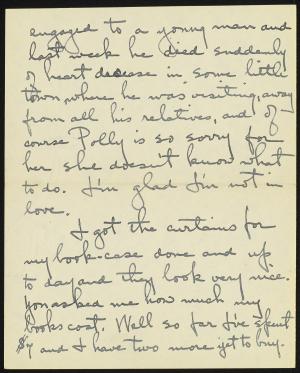 engaged to a young man and
last week he died suddenly
of heart disease in some little
town, where he was visiting, away
from all his relatives, and of
course Polly is so sorry for
her she doesn't know what
to do. I'm glad I'm not in
love.
I got the curtains for
my book-case done and up
to day and they look very nice.
You asked me how much my
books cost. Well so far I've spent
$7 and I have two more yet to buy.